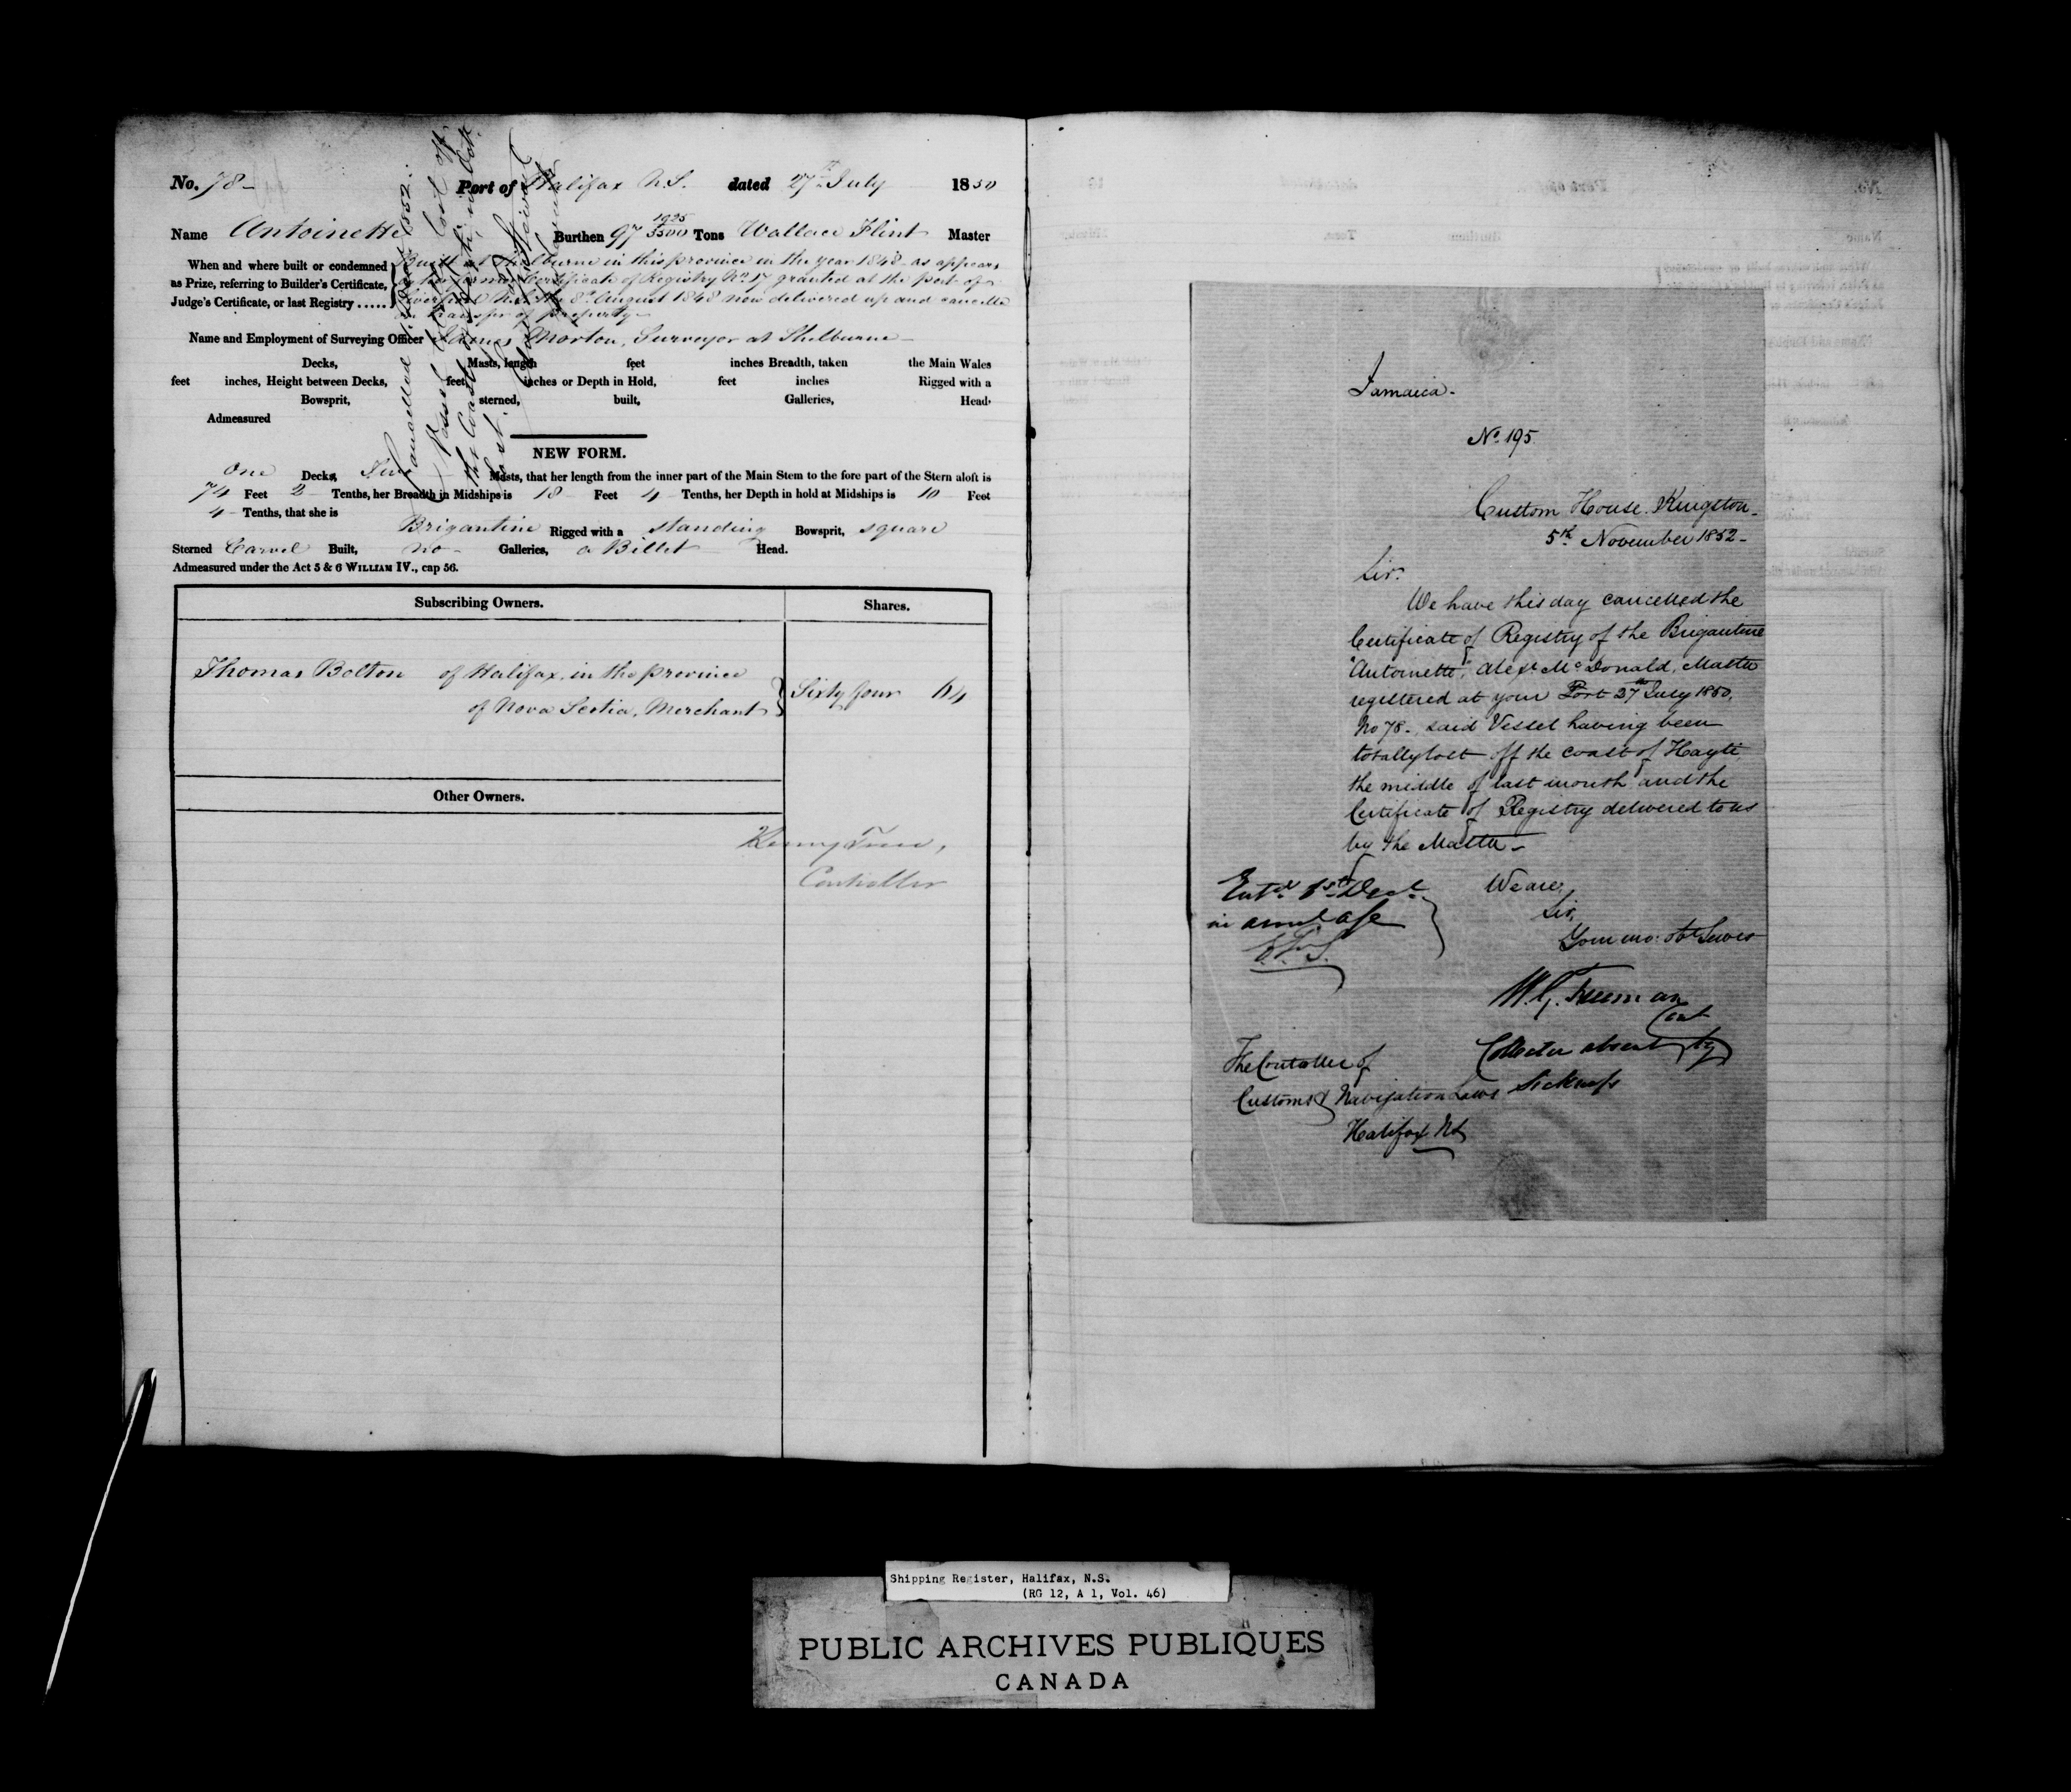 No. 78- Port of Halifax N.S. dated 27th July 1850
Name Antoinette Burthen 97 1925/3500 Tons Wallace Flint Master
When and where built or condemned as Prize, referring to Builder's Certificate, Judge's Certificate, or last Registry .....
Built at Shelburne in this province in the year 1848 as appears
by the former Certificate of Registry No 17 granted at the port of
Liverpool N.S. the 8th August 1848 now delivered up and cancelled
on transfer of property-
Name and Employment of Surveying Officer James Morton, Surveyor at Shelburne-
Decks, Masts, length feet inches Breadth, taken the Main Wales
feet inches, Height between Decks, feet inches or Depth in Hold, feet inches Rigged with a
Bowsprit, sterned, built, Galleries, Head.
Admeasured
NEW FORM.
One Decks, Two Masts, that her length from the inner part of the Main Stem to the fore part of the Stern aloft is
74 Feet 2 Tenths, her Breadth in Midships is 18 Feet 4 Tenths, her Depth in hold at Midships is 10 Feet
4 Tenths, that she is
Brigantine Rigged with a standing Bowsprit, square
Sterned Carvel Built, no Galleries, a Billet Head.
Admeasured under the Act 5 & 6 WILLIAM IV., cap 56.
Subscribing Owners. Shares.
Thomas Bolton of Halifax, in the province
of Nova Scotia, Merchant } Sixty four 64
Other Owners.
Controller
Cancelled
Vessel lost off
the Coast of
last.
Jamaica.
No. 195
Custom House Kingston
5th November 1852-
Sir.
We have this day cancelled the
Certificate of Registry of the Brigantine
"Antoinette", Alexr McDonald, Master
registered at your Port 27th July 1850,
No 78., said Vessel having been
totally lost off the coast of Hayti
the middle of last month and the
Certificate of Registry delivered to us
by the Master-
Entd 1st Decr
We are,
Sir,
Your mo: obt Servts
W. G. Freeman
Cont
Collector absent by
Sickness
The Controller of
Customs & Navigation Laws
Halifax NS
Shipping Register, Halifax, N.S.
(RG 12, A 1, Vol. 46)
PUBLIC ARCHIVES PUBLIQUES
CANADA